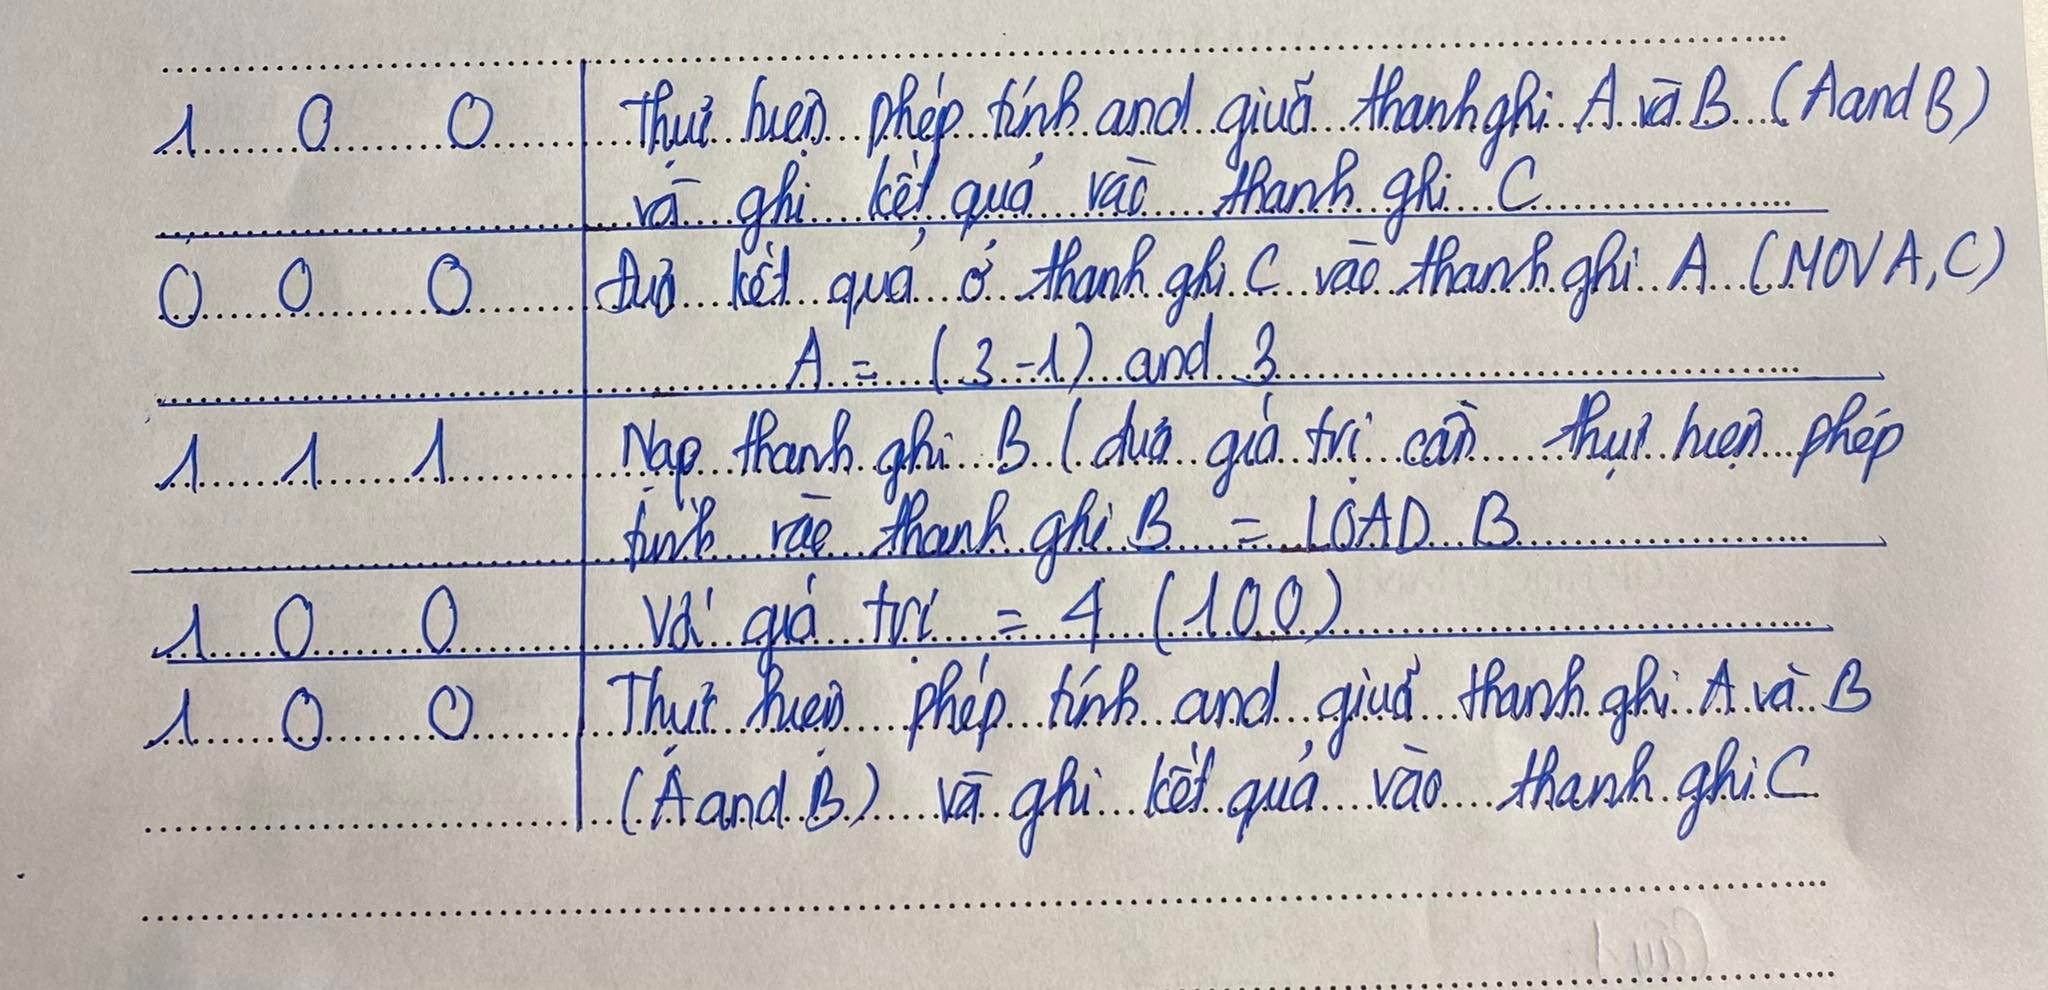 1 0 0 Thực hiện phép tính and giữa thanh ghi A và B (A and B)
và ghi kết quả vào thanh ghi C
0 0 0 Đưa kết quả ở thanh ghi C vào thanh ghi A (MOV A, C)
A = (3 - 1) and 3
1 1 1 Nạp thanh ghi B (đưa giá trị cần thực hiện phép
tính vào thanh ghi B = LOAD B
1 0 0 Với giá trị = 4 (100)
1 0 0 Thực hiện phép tính and giữa thanh ghi A và B
(A and B) và ghi kết quả vào thanh ghi C